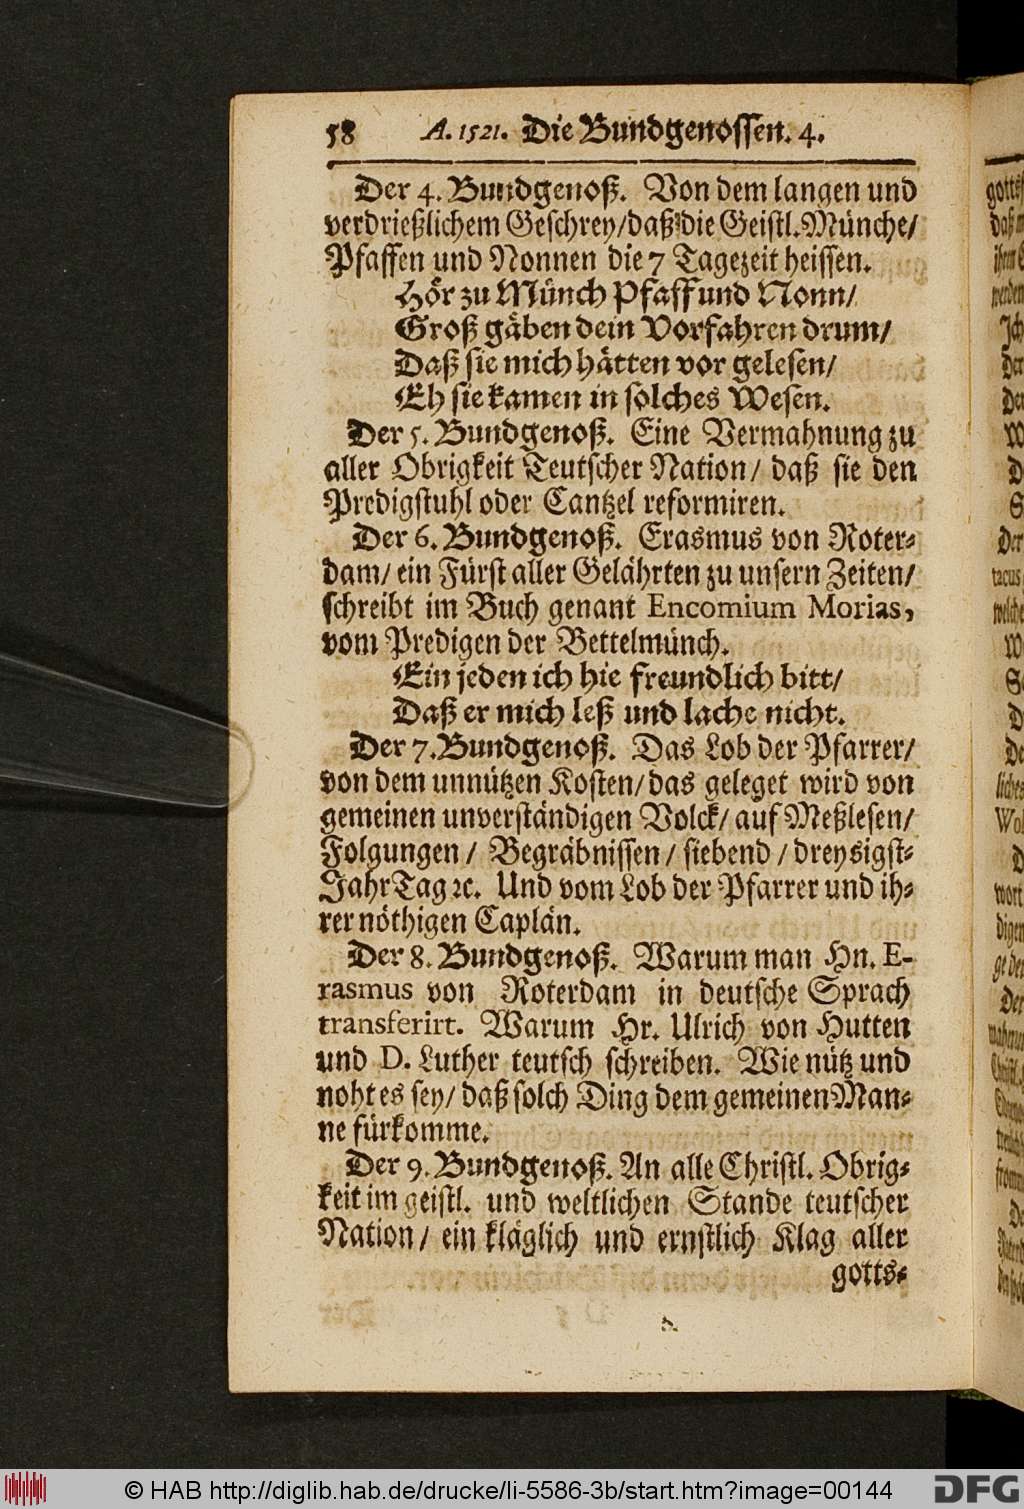 58 A. 1521. Die Bundgenossen. 4.
Der 4. Bundgenoß. Von dem langen und
verdrießlichem Geschrey/ daß die Geistl. Münche/
Pfaffen und Nonnen die 7 Tagezeit heissen.
Hör zu Münch Pfaff und Nonn/
Groß gäben dein Vorfahren drum/
Daß sie mich hätten vor gelesen/
Eh sie kamen in solches Wesen.
Der 5. Bundgenoß. Eine Vermahnung zu
aller Obrigkeit Teutscher Nation/ daß sie den
Predigstuhl oder Cantzel reformiren.
Der 6. Bundgenoß. Erasmus von Roter-
dam/ ein Fürst aller Gelährten zu unsern Zeiten/
schreibt im Buch genant Encomium Morias,
vom Predigen der Bettelmünch.
Ein jeden ich hie freundlich bitt/
Daß er mich leß und lache nicht.
Der 7. Bundgenoß. Das Lob der Pfarrer/
von dem unnützen Kosten/ das geleget wird von
gemeinen unverständigen Volck/ auf Meßlesen/
Folgungen/ Begräbnissen/ siebend/ dreysigst-
JahrTag ꝛc. Und vom Lob der Pfarrer und ih-
rer nöthigen Caplän.
Der 8. Bundgenoß. Warum man Hn. E-
rasmus von Roterdam in deutsche Sprach
transferirt. Warum Hr. Ulrich von Hutten
und D. Luther teutsch schreiben. Wie nütz und
noht es sey/ daß solch Ding dem gemeinen Man-
ne fürkomme.
Der 9. Bundgenoß. An alle Christl. Obrig-
keit im geistl. und weltlichen Stande teutscher
Nation/ ein kläglich und ernstlich Klag aller
gotts-
© HAB http://diglib.hab.de/drucke/li-5586-3b/start.htm?image=00144
DFG